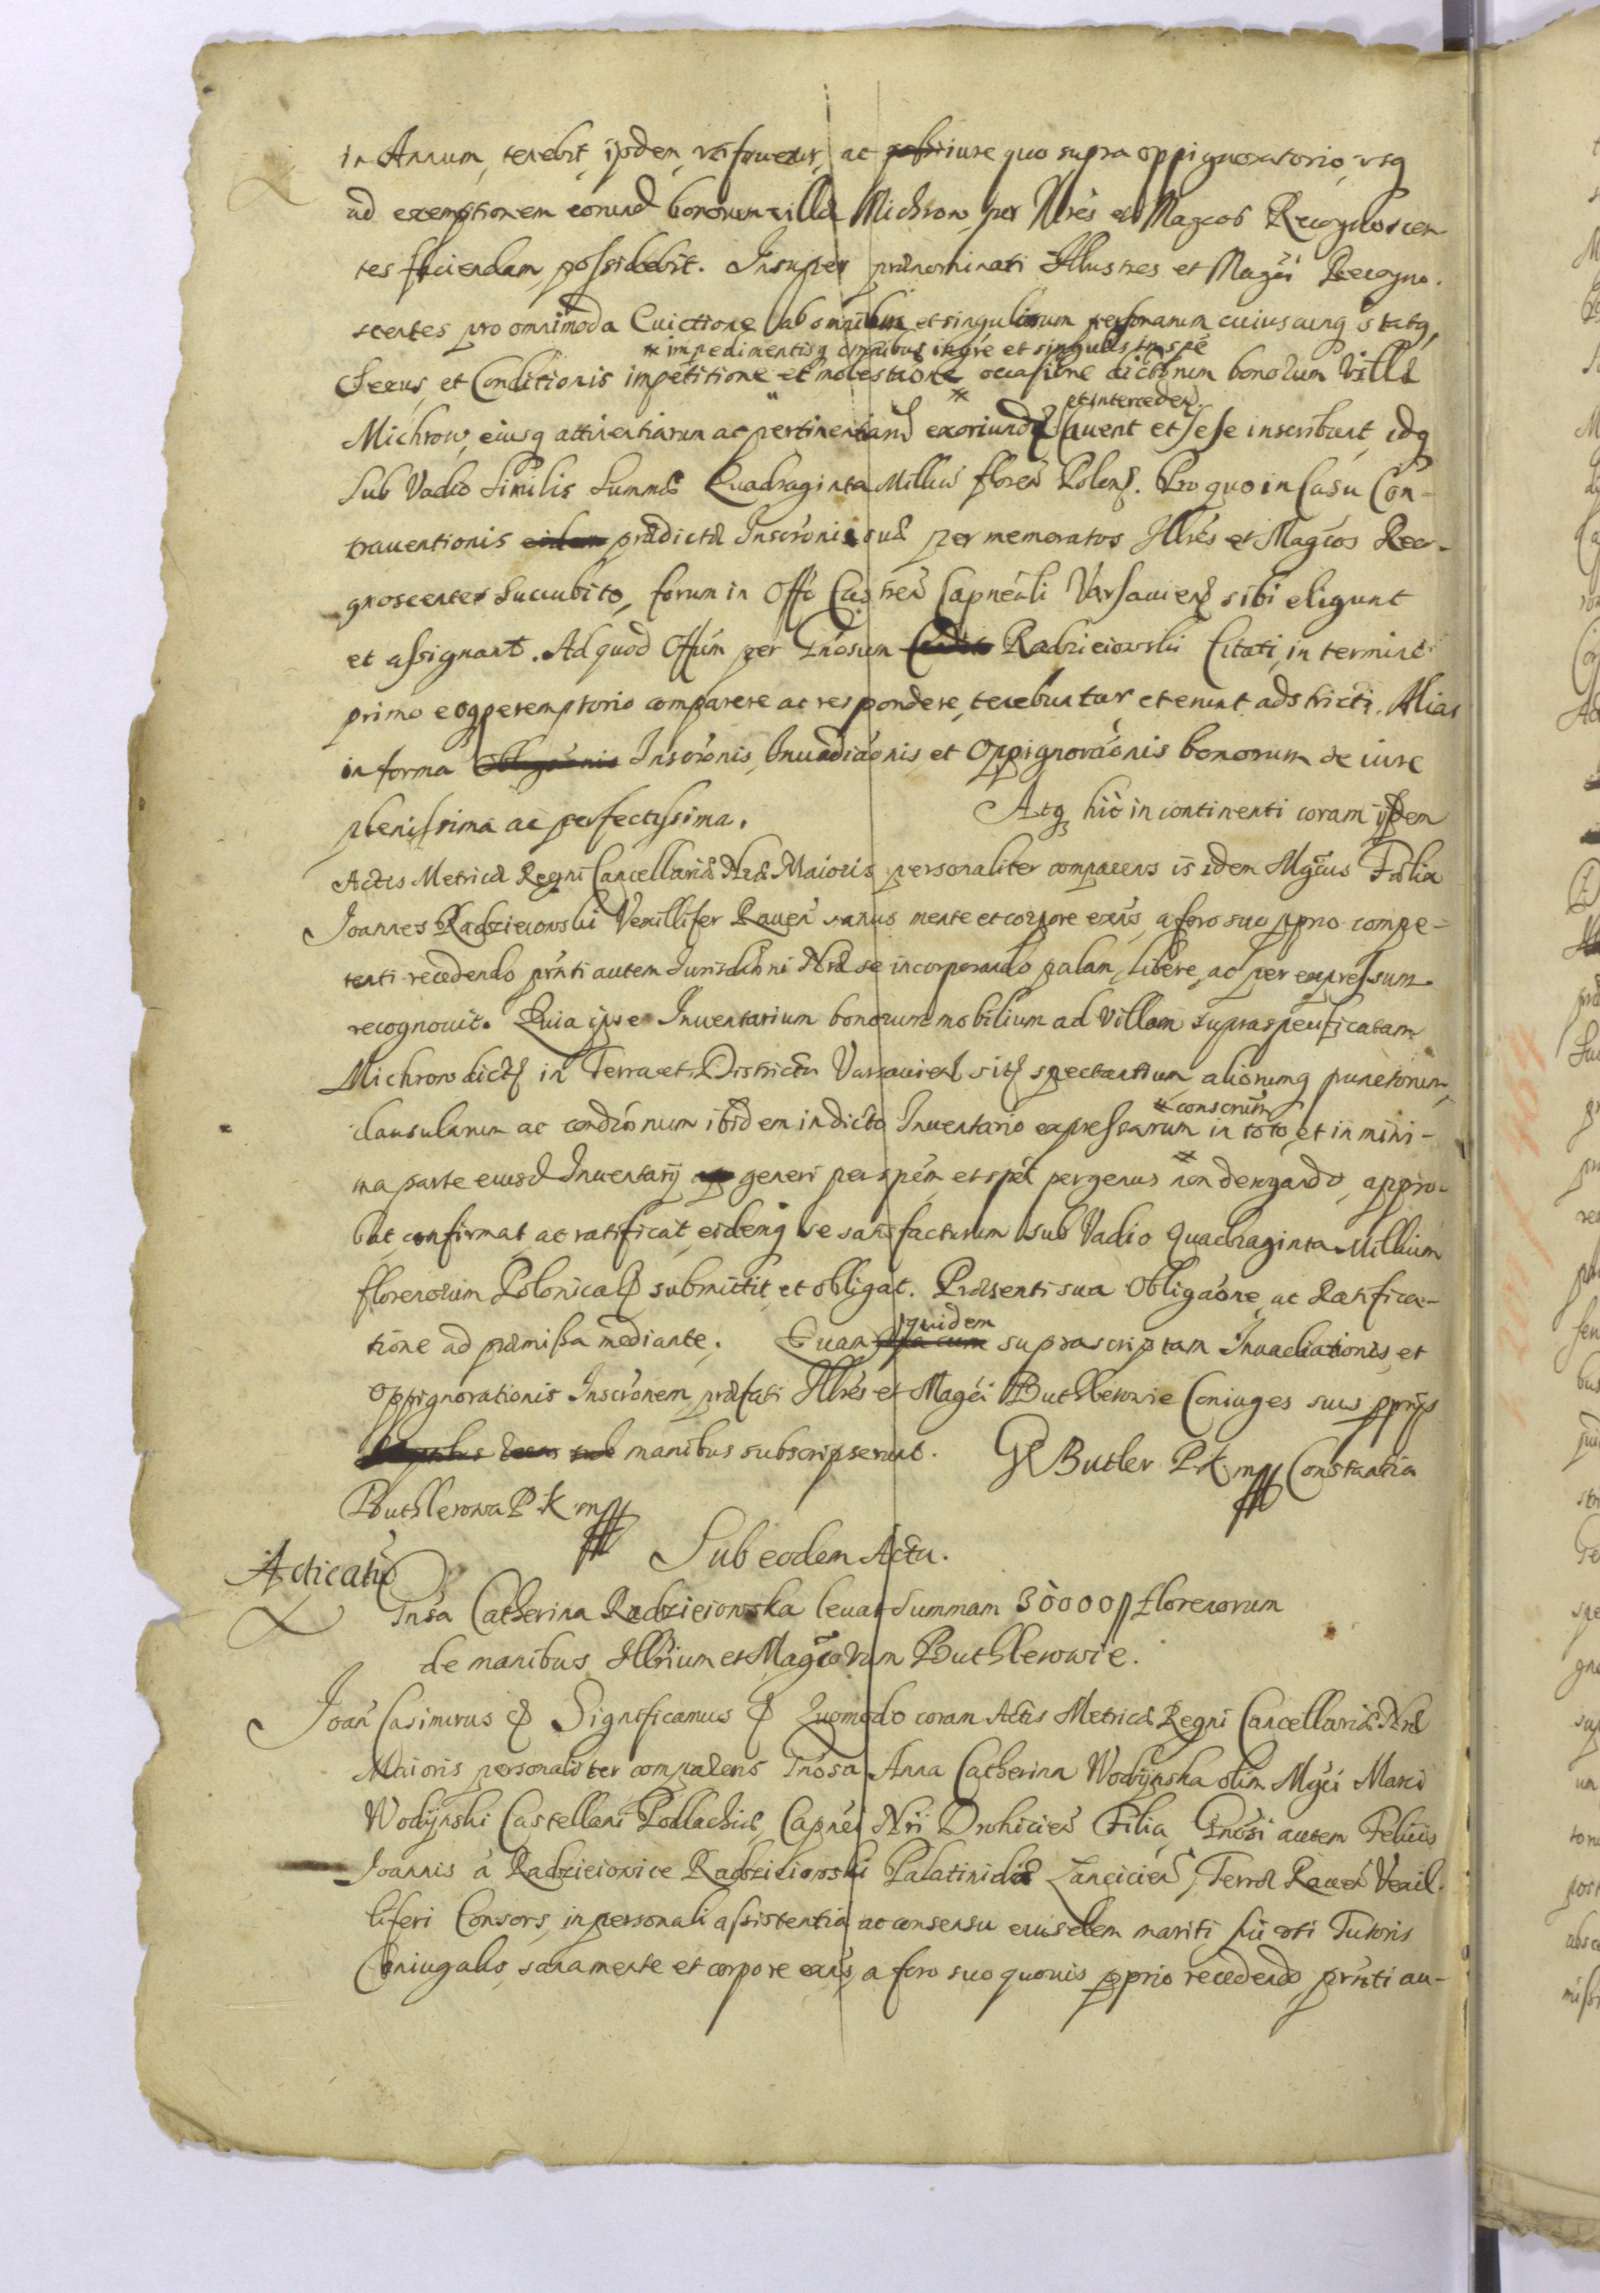 in Annum, tenebit, ijsdem, utifruetur, ac iure quo supra oppignoratorio, usq
ad exemptionem eorund bonorum villæ Michrow per Illres et Magcos Recognoscen
tes faciendam, possidebit. Insuper prænominati Illustres et Magci Recogno.
scentes pro omnimoda Euictione ab omnibus et singularum personarum cuiuscunq statq,
impedimentisq omnibus in gñre et singulis in spe
Sexus, et Conditionis impetitione et molestatione occasione dictorum bonorum Villæ
et interceden.
Michrow, eiusq attinentiarum ac pertinentiarū exoriundæ Cauent et sese inscribunt, idq
Sub Vadio Similis Summæ Quadraginta Milliū floren̄ Polon̄. Pro quo in Casu Con-
trauentionis prædictæ Inscrōnis suæ per memoratos Illrēs et Magcos Reco-
gnoscentes Succubito, forum in Offo Castren̄ Capneāli Varsauien̄ sibi eligunt
et assignant. Ad quod Offūm per Gnosum Radzieiowski Citati, in termino
primo eoq peremptorio comparere ac respondere, tenebuntur, et erunt adstricti. Alias
in forma Inscrōnis, Inuadiāonis et Oppignorāonis bonorum de iure
plenissima ac perfectissima. Atq hic in continenti coram ijsdem
Actis Metricæ Regni Cancellariæ Nræ Maioris personaliter comparens is idem Mgcus Felix
Joannes Radzieiowski Vexillifer Rauen̄ sanus mente et corpore exñs, a foro suo pprio compe-
tenti recedendo prñti autem Jurisdictioni Nræ se incorporando palam, libere, ac per expressum
recognouit. Quia ipse Inuentarium bonorum mobilium ad Villam supraspecificatam
Michrow dictā in Terra et Districtu Varsauien̄ sitā spectantium aliorumq punctorum,
conscrūm
clausularum ac condiōnum ibidem in dicto Inuentario expressarum in toto, et in mini-
ma parte eiusd Inuentarij generi per spēm et spēi per genus non derogando, appro-
bat, confirmat, ac ratificat, eidemq se satisfacturum sub Vadio Quadraginta Millium
florenorum Polonicalū submittit, et obligat. Præsenti sua Obligāone, ac Ratifica-
tione ad præmissa mediante. Quam
quidem
suprascriptam Inuadiationis, et
Oppignorationis Inscrōnem, præfati Illrēs et Magci Buthlerowie Coniuges suis pprijs
manibus subscripserunt. G Butler P.K. mp Constantia
Buthlerowa P.K. mp
Sub eodem Actu.
Acticatū
Gnsa Catherina Radzieiowska leuat Summam 30000 florenorum
de manibus Illrium et Magcorum Buthlerowie.
Joan̄ Casimirus & Significamus & Quomodo coram Actis Metricæ Regni Cancellariæ Nræ
Maioris personaliter comparens Gnosa Anna Catherina Wodynska olim Mgci Marci
Wodynski Castellani Podlachiæ, Capnei Nri Drohicien̄ Filia, Gnosi autem Felicis
Joannis a Radzieiowice Radzieiowski Palatinidæ Lancicien̄, Terræ Rauen̄ Vexil-
liferi Consors, in personali assistentia ac consensu eiusdem mariti sui vti Tutoris
Coniugalis, sana mente et corpore exñs, a foro suo quouis pprio recedendo, prñti au-